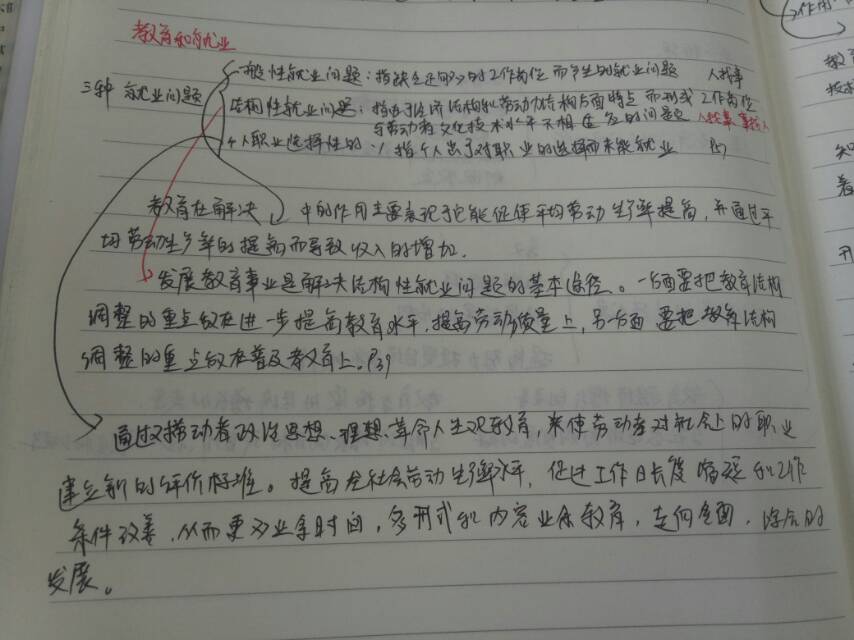 教育和就业
三种就业问题
一般性就业问题：指缺乏足够的工作岗位而产生的就业问题 人找事
结构性就业问题：指由于经济结构和劳动力结构方面特点而形成工作岗位
与劳动者文化技术水平不相适应的问题 人找事，事找人
个人职业选择性的 〃 指个人出于对职业的选择而未能就业 P57
教育在解决 中的作用主要表现于它能促使平均劳动生产率提高，并通过平
均劳动生产率的提高而导致收入的增加.
发展教育事业是解决结构性就业问题的基本途径。一方面要把教育结构
调整的重点放在进一步提高教育水平，提高劳动质量上，另一方面要把教育结构
调整的重点放在普及教育上。P59
通过对劳动者政治思想、理想、革命人生观教育，来使劳动者对社会上的职业
建立新的评价标准。提高全社会劳动生产率水平，促进工作日长度缩短和工作
条件改善，从而更多业余时间，多形式和内容业余教育，走向全面，的
发展。
作用
教育
技术
知
着
开